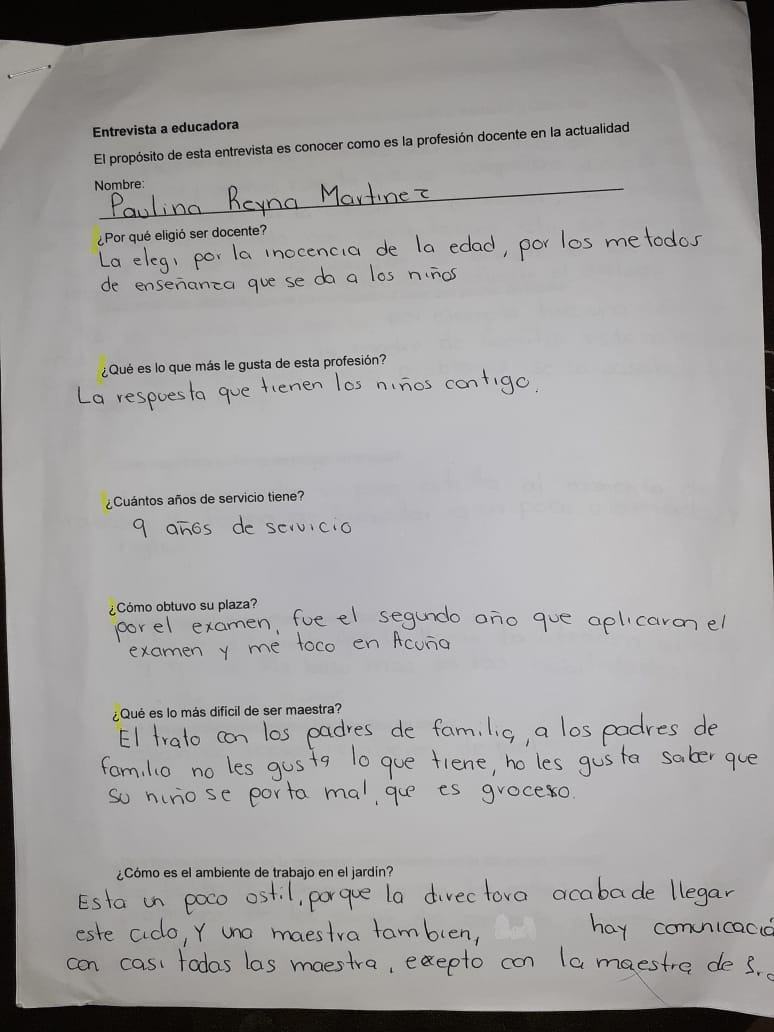 Entrevista a educadora
El propósito de esta entrevista es conocer como es la profesión docente en la actualidad
Nombre:
Paulina Reyna Martinez
¿Por qué eligió ser docente?
La elegi por la inocencia de la edad, por los metodos
de enseñanza que se da a los niños
¿Qué es lo que más le gusta de esta profesión?
La respuesta que tienen los niños contigo.
¿Cuántos años de servicio tiene?
9 años de servicio
¿Cómo obtuvo su plaza?
por el examen, fue el segundo año que aplicaron el
examen y me toco en Acuña
¿Qué es lo más dificil de ser maestra?
El trato con los padres de familia, a los padres de
familia no les gusta lo que tiene, no les gusta saber que
su niño se porta mal, que es grocero.
¿Cómo es el ambiente de trabajo en el jardín?
Esta un poco ostil, porque la directora acaba de llegar
este ciclo, Y una maestra tambien, hay comunicació
con casi todas las maestra, exepto con la maestra de